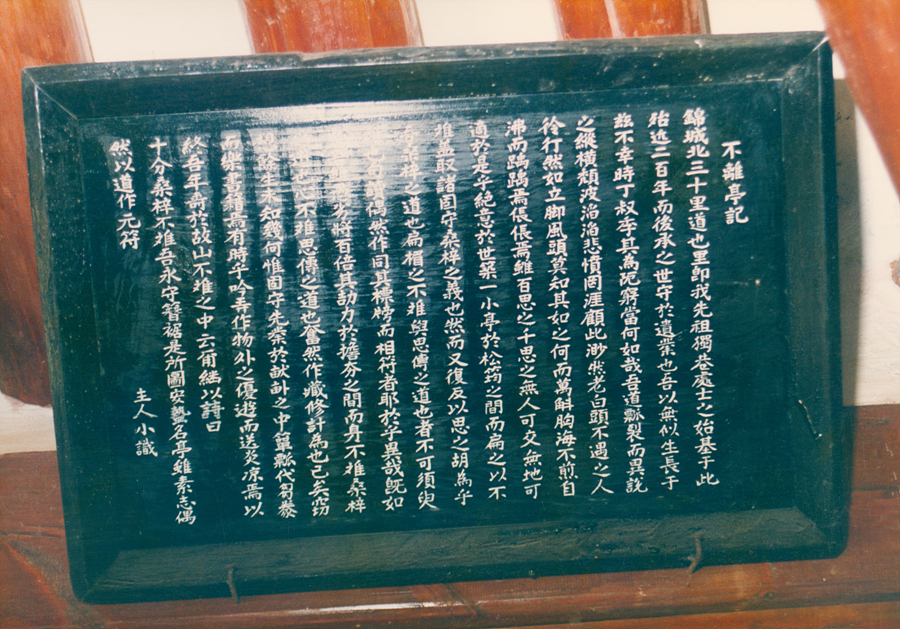 不離亭記
錦城北三十里道也里卽我先祖獨巷處士之始基于此
殆近二百年而後承之世守於遺業也吾以無似生長于
玆不幸時丁叔季其為阨窮當何如哉吾道瓢裂而異說
之縱橫頹波滔滔悲憤罔涯顧此渺然老白頭不遇之人
彳亍行然如立脚風頭莫知其如之何而萬斛胸海不煎自
沸而踽踽焉倀倀焉雖百思之千思之無人可交無地可
適於是乎絶意於世築一小亭於松筠之間而扁之以不
離盖取諸固守桑梓之義也然而又復反以思之胡為乎
桑梓之道也扁楣之不離與思傳之道也者不可須臾
偶然作同其標榜而相符者耶於乎異哉旣如
劣將百倍其劼力於擔夯之間而身不離桑梓
不離思傳之道也奮然作藏修計為也已矣窃
餘生未知幾何惟固守先業於畎畝之中簞瓢代芻豢
而樂書籍焉有時乎吟弄作物外之優遊而送炎凉焉以
終吾年寄於故山不離之中云爾繼以詩曰
十分桑梓不離吾永守簪裾是所圖安藝名亭雖素志偶
然以道作元符
主人小識